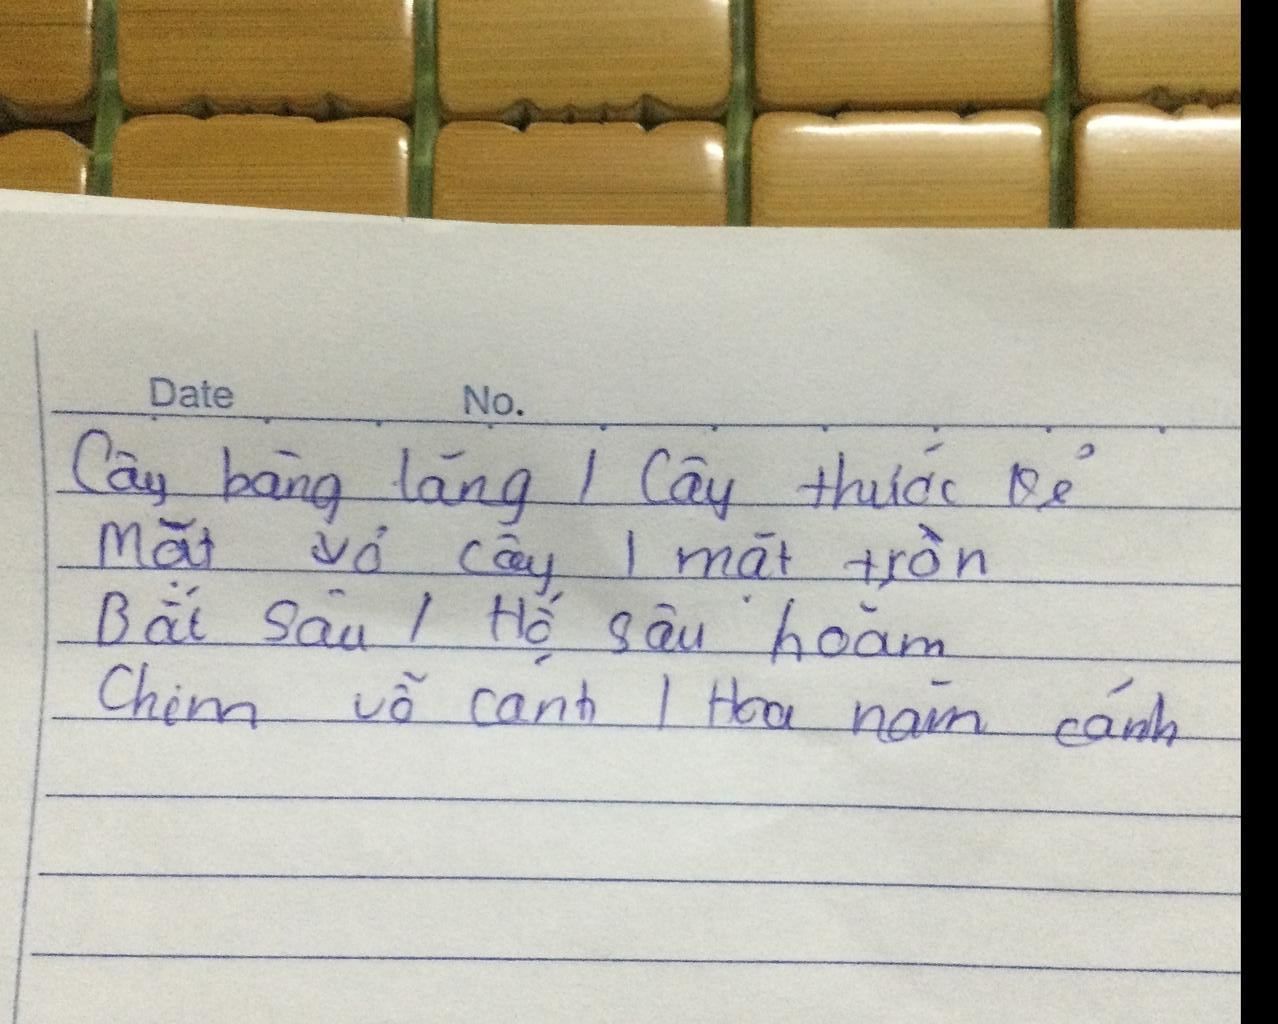 Date No.
Cây bằng lăng / Cây thước kẻ
Mắt vỏ cây / mặt tròn
Bắt sâu / Hố sâu hoắm
Chim vỗ cánh / Hoa năm cánh